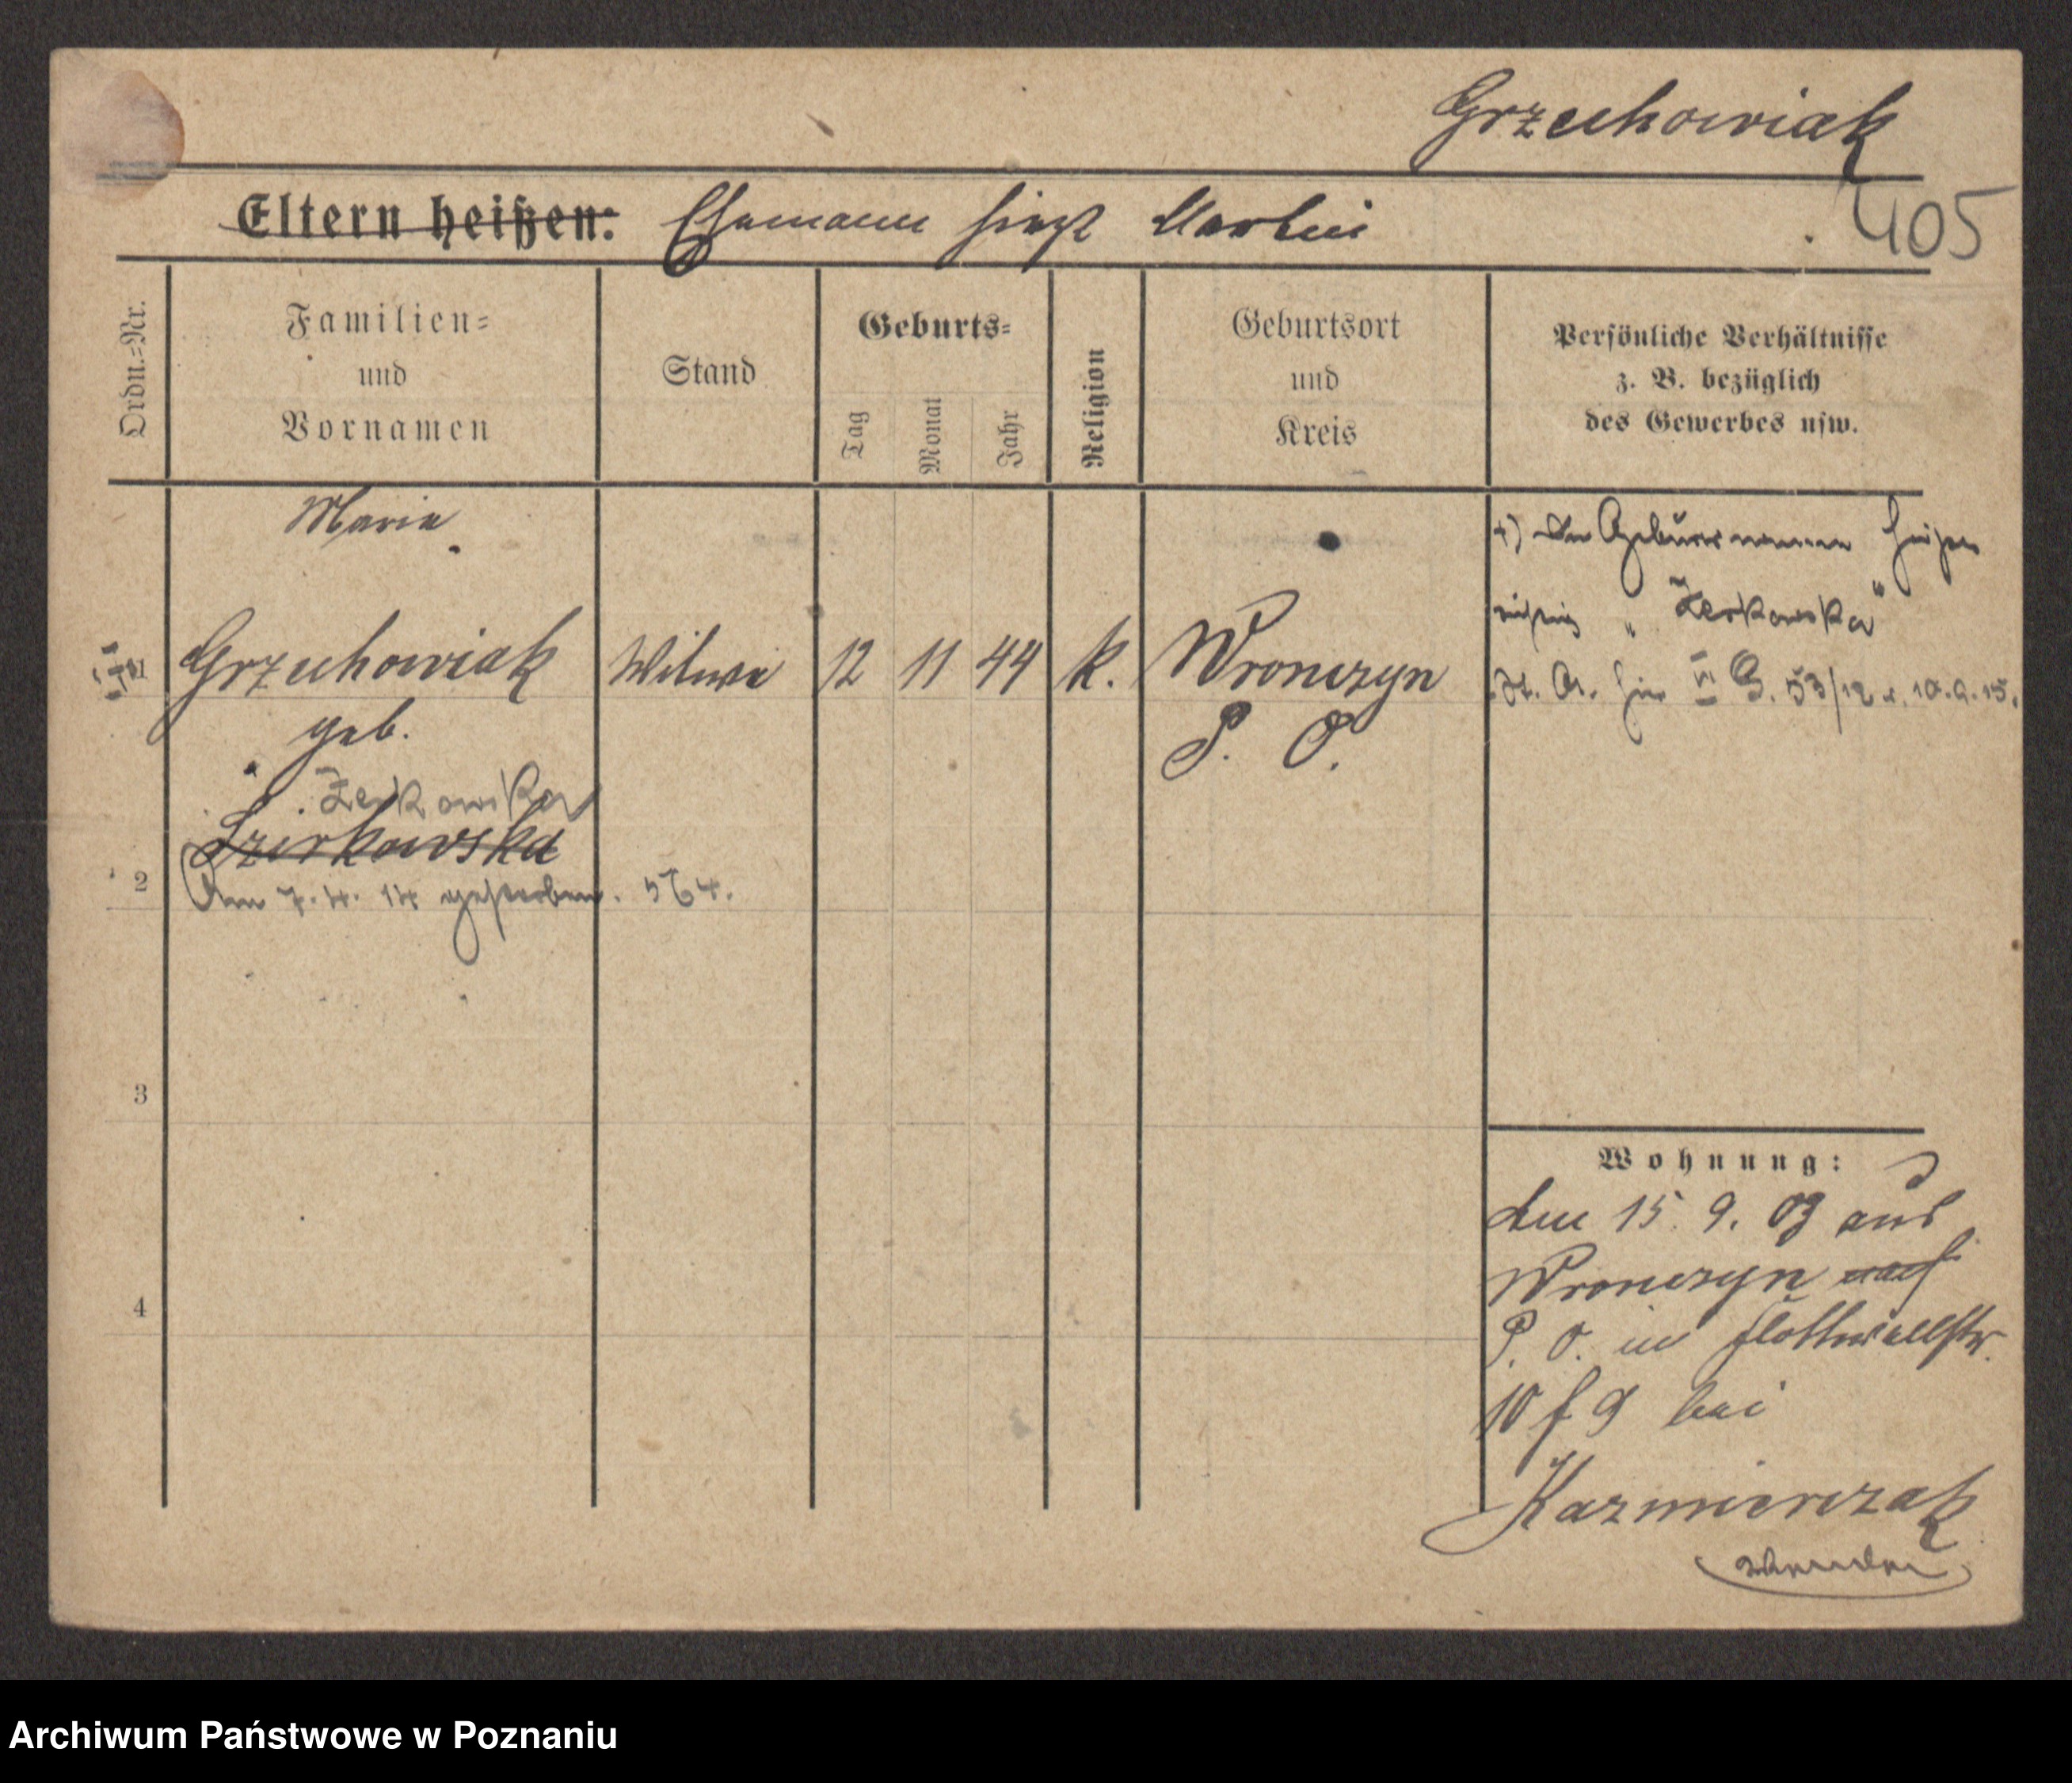 Grzechowiak
Eltern heißen: Ehemann hieß Martin
405
Ordn.-Nr.
Familien-
und
Vornamen
Stand
Geburts-
Tag
Monat
Jahr
Religion
Geburtsort
und
Kreis
Persönliche Verhältnisse
z. B. bezüglich
des Gewerbes usw.
Maria
1 Grzechowiak Witwe 12 11 44 k. Wronczyn
geb. P. O.
Zerkowska
Szirkowska
2 Am 7. 4. 14 gestorben. 564.
+) Der Geburtsname
richtig „Zerkowska"
St. A. VI B. 53/12 v. 10. 9. 15.
3
4
Wohnung:
den 15. 9. 03 aus
Wronczyn nach
P. O. in Flottwellstr.
10 f 9 bei
Kazmierczak
wenden
Archiwum Państwowe w Poznaniu